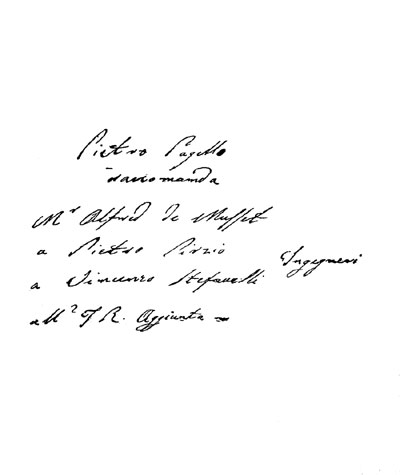 Pietro Pagello
raccomanda
Mr Alfred de Musset
a Pietro Pinzio
a Vincenzo Stefanelli Ingegneri
e Mr J. R. Aggiunta